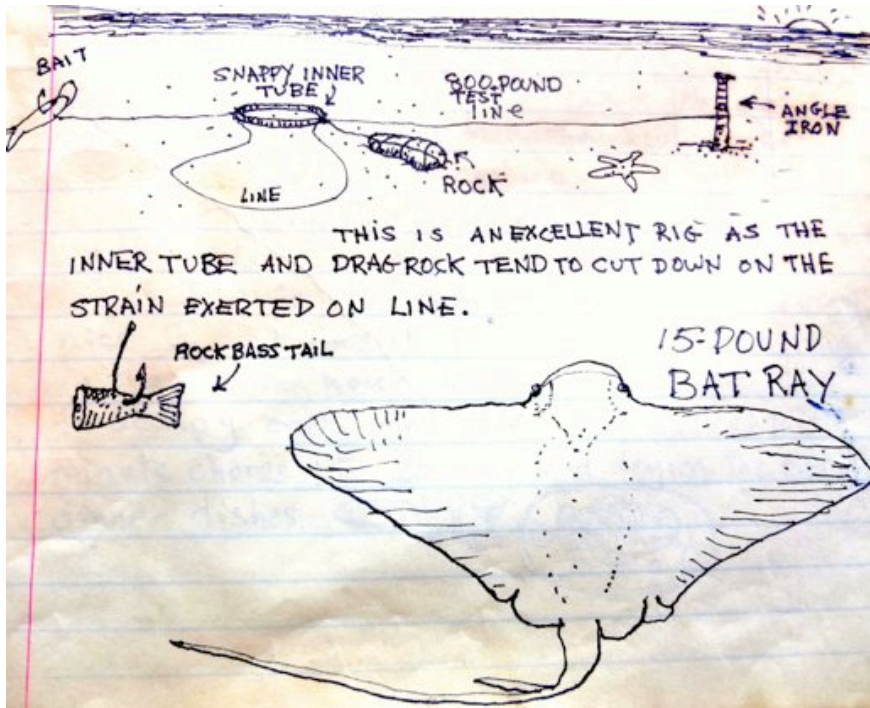 BAIT
SNAPPY INNER
TUBE
800-POUND
TEST
LINE
ANGLE
IRON
ROCK
LINE
THIS IS AN EXCELLENT RIG AS THE
INNER TUBE AND DRAG ROCK TEND TO CUT DOWN ON THE
STRAIN EXERTED ON LINE.
ROCK BASS TAIL
15-POUND
BAT RAY